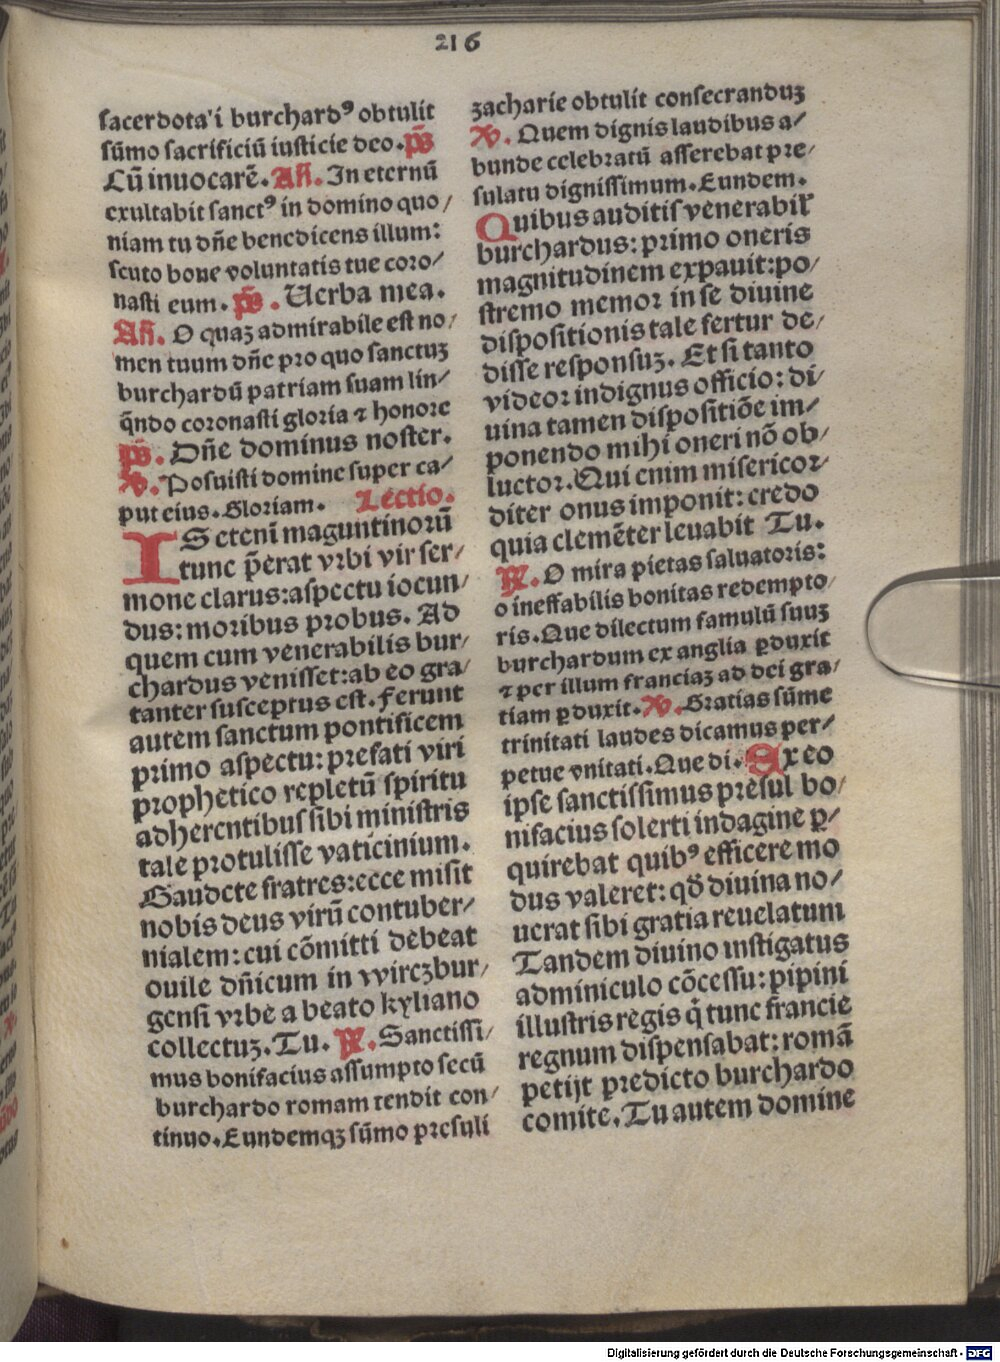 216
sacerdota'i burchardꝰ obtulit
sūmo sacrificiū iusticie deo. p̄s
Cū inuocarē. Añ. In eternū
exultabit sanctꝰ in domino quo/
niam tu dñe benedicens illum:
scuto bone voluntatis tue coro/
nasti eum. p̄s. Uerba mea.
Añ. O quaꝫ admirabile est no/
men tuum dñe pro quo sanctuꝫ
burchardū patriam suam lin/
q̄ndo coronasti gloria ⁊ honore
p̄s. Dñe dominus noster.
℣. Posuisti domine super ca/
put eius. Gloriam. Lectio.
IS eteni maguntinorū
tunc p̄erat vrbi vir ser/
mone clarus: aspectu iocun/
dus: moribus probus. Ad
quem cum venerabilis bur/
chardus venisset: ab eo gra/
tanter susceptus est. Ferunt
autem sanctum pontificem
primo aspectu: prefati viri
prophetico repletū spiritu
adherentibus sibi ministris
tale protulisse vaticinium.
Gaudete fratres: ecce misit
nobis deus virū contuber/
nialem: cui cōmitti debeat
ouile dñicum in wirczbur/
gensi vrbe a beato kyliano
collectuꝫ. Tu. ℟. Sanctissi/
mus bonifacius assumpto secū
burchardo romam tendit con/
tinuo. Eundemqꝫ sūmo presuli
zacharie obtulit consecranduꝫ
℣. Quem dignis laudibus a/
bunde celebratū asserebat pre/
sulatu dignissimum. Eundem.
Quibus auditis venerabilꝭ
burchardus: primo oneris
magnitudinem expauit: po/
stremo memor in se diuine
dispositionis tale fertur de/
disse responsuꝫ. Et si tanto
videor indignus officio: di/
uina tamen dispositiōe im/
ponendo mihi oneri nō ob/
luctor. Qui enim misericor/
diter onus imponit: credo
quia clemēter leuabit Tu.
℟. O mira pietas saluatoris:
o ineffabilis bonitas redempto/
ris. Que dilectum famulū suuꝫ
burchardum ex anglia ꝑduxit
⁊ per illum franciaꝫ ad dei gra/
tiam ꝑduxit. ℣. Gratias sūme
trinitati laudes dicamus per/
petue vnitati. Que di. Ex eo
ipse sanctissimus presul bo/
nifacius solerti indagine ꝑ/
quirebat quibꝰ efficere mo
dus valeret: qđ diuina no/
uerat sibi gratia reuelatum
Tandem diuino instigatus
adminiculo cōcessu: pipini
illustris regis q̇ tunc francie
regnum dispensabat: romā
petijt predicto burchardo
comite. Tu autem domine
Digitalisierung gefördert durch die Deutsche Forschungsgemeinschaft - DFG